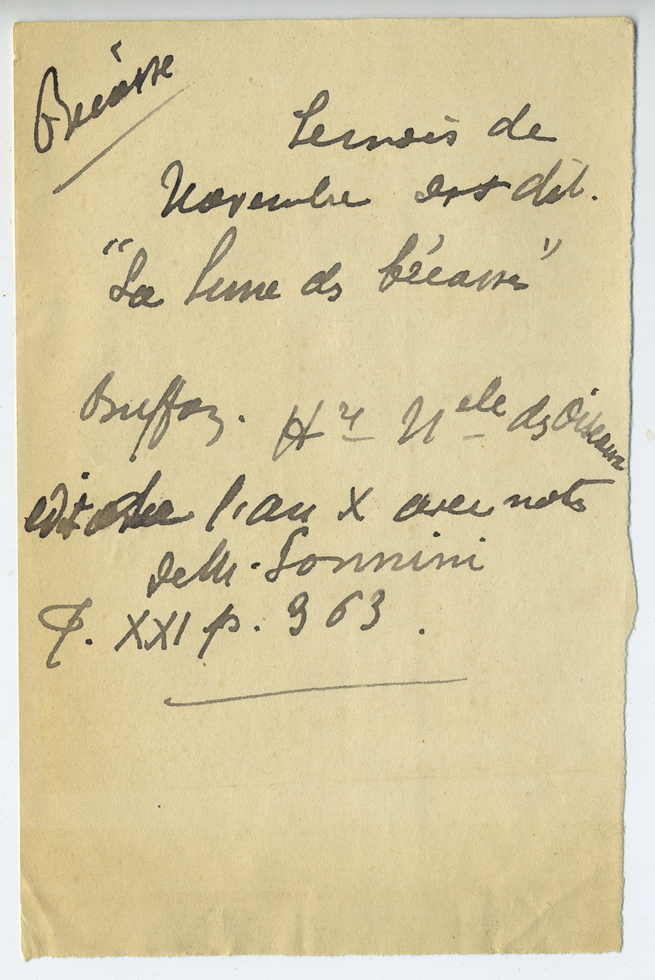 Bécasse
Le mois de
Novembre est dit.
"La lune des bécasses"
Buffon. Hre Nelle des Oiseaux
edit de l'an X avec notes
de M. Sonnini
T. XXI p. 363.